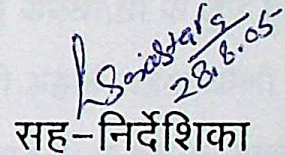 28.8.05
सह-निर्देशिका